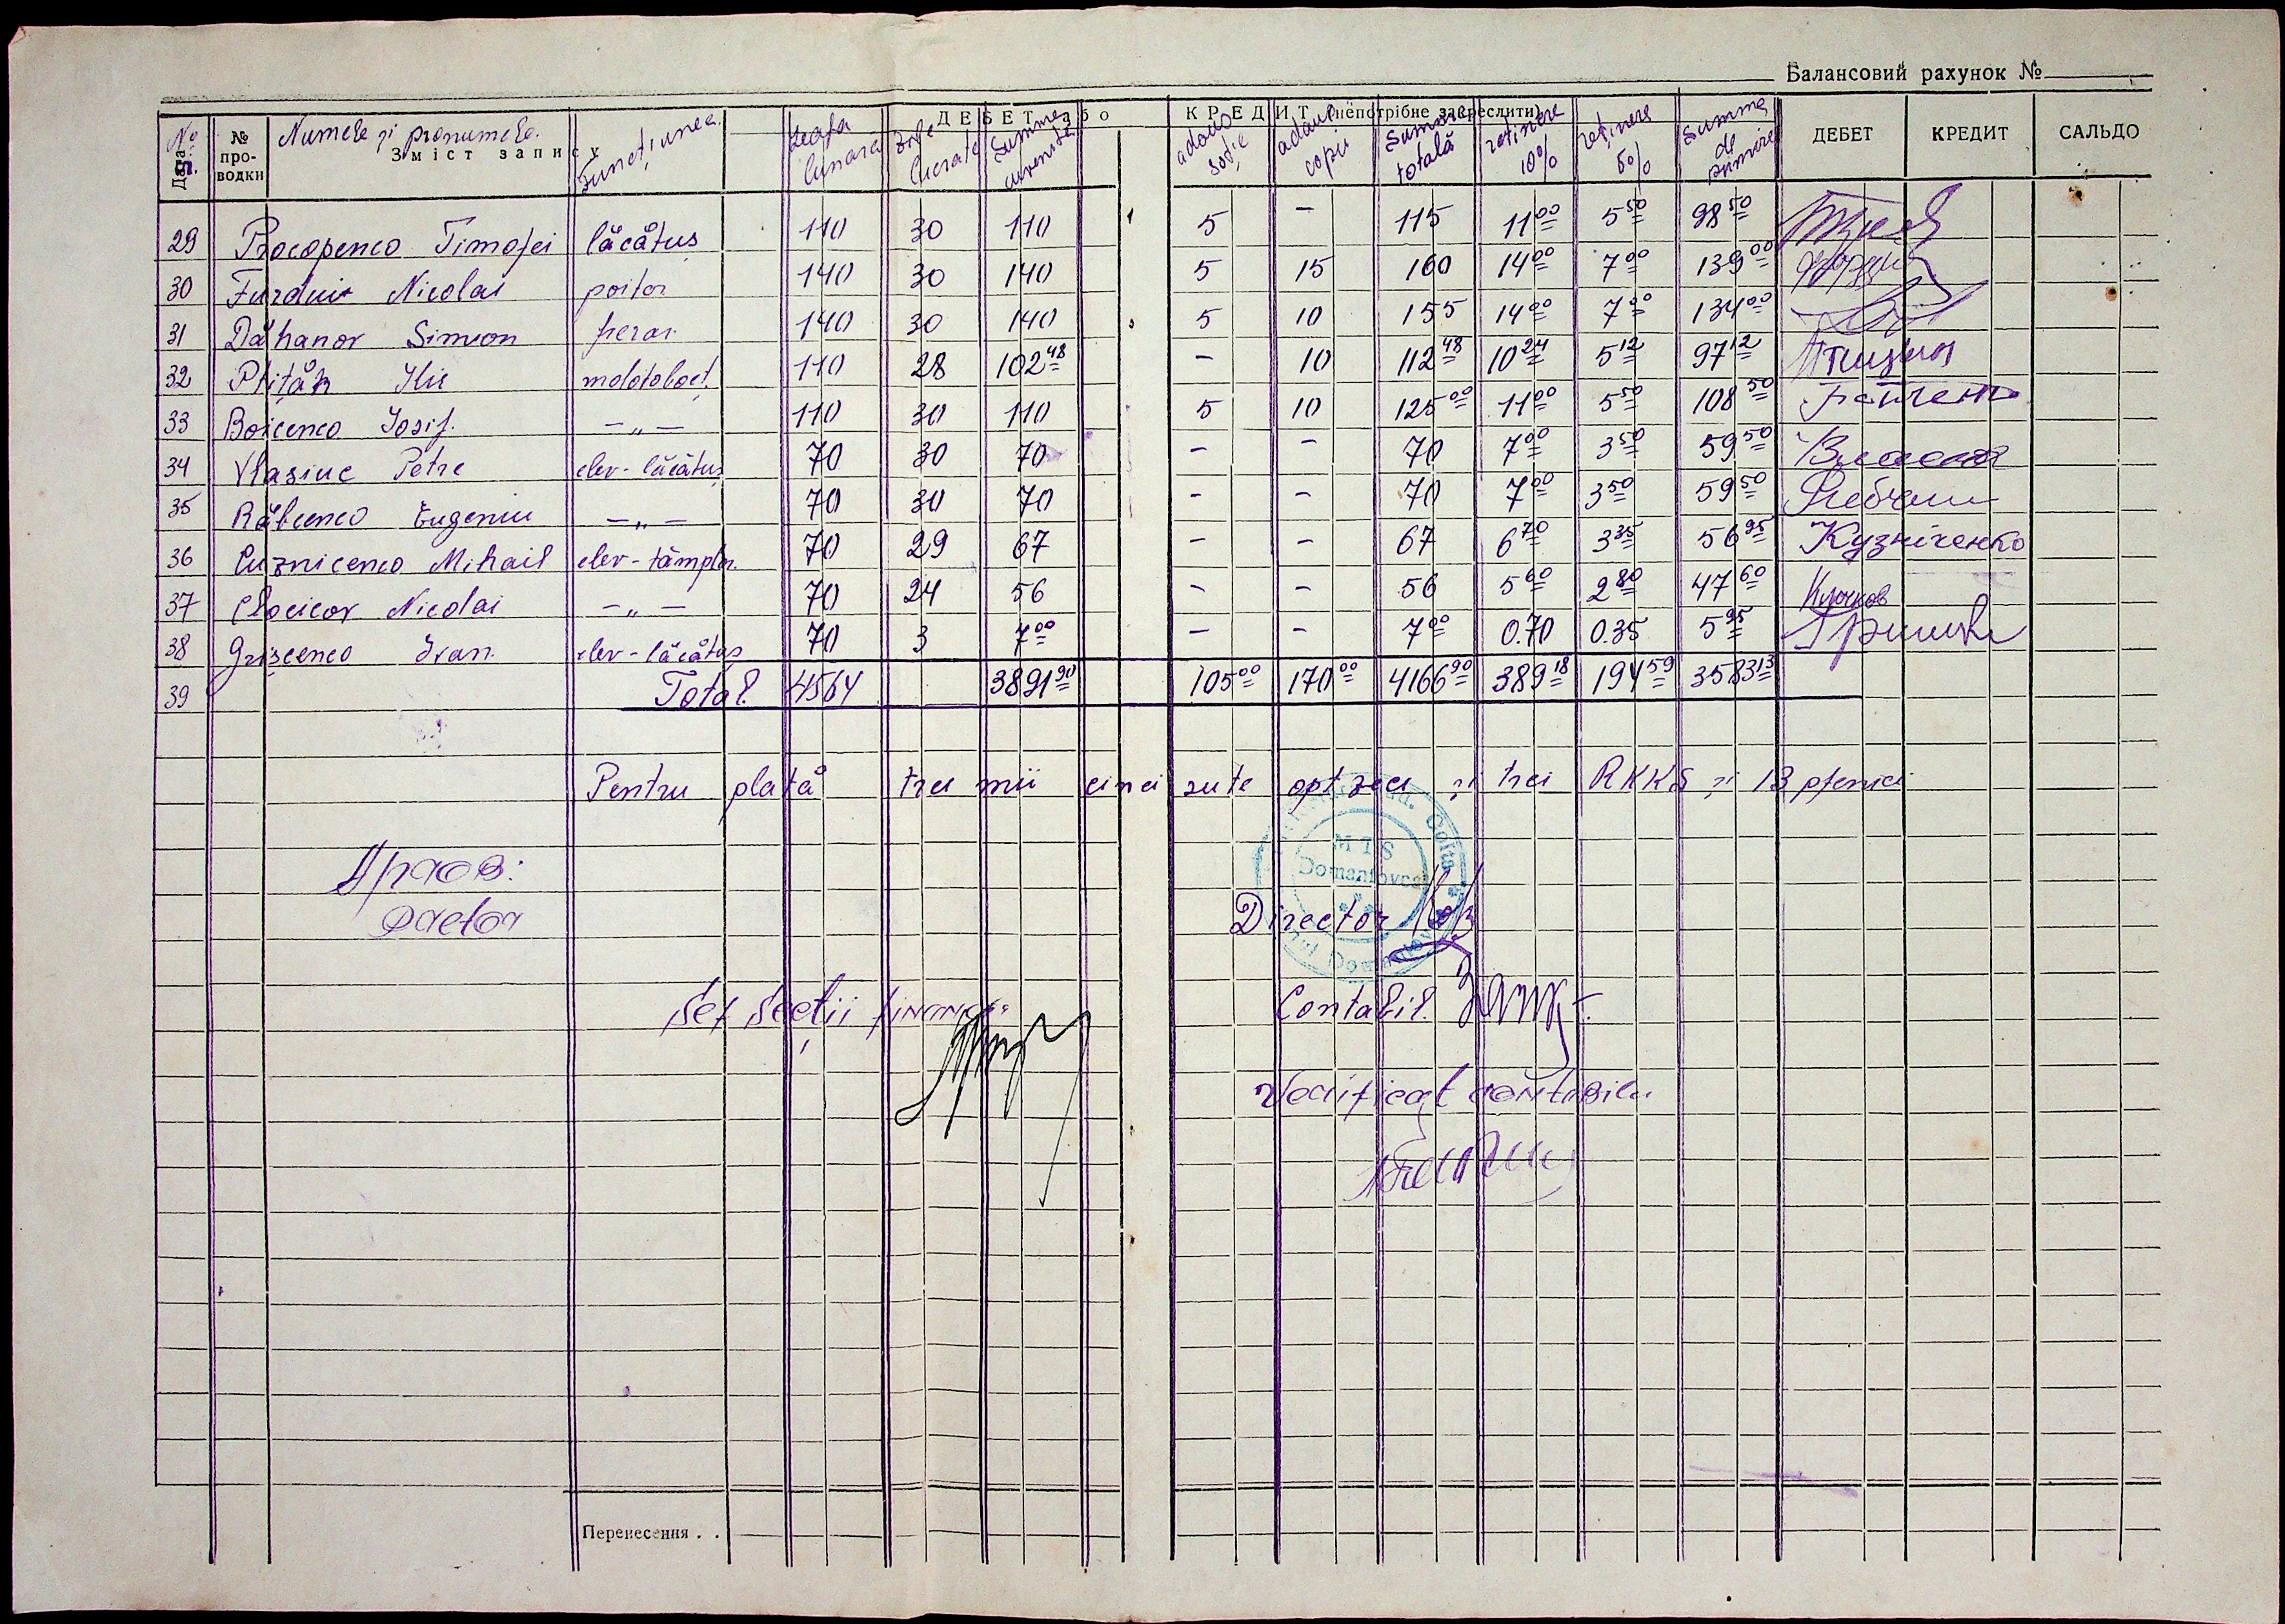 Балансовий рахунок №
№ Дата № про-водки Numele și pronumele Зміст запису Funcțiunea ДЕБЕТ або КРЕДИТ (непотрібне закреслити) Leafa lunară Zile lucrate Summa cuvenită adaus soție adaus copii Summa totală reținere 10% reținere 5% Summa de primire ДЕБЕТ КРЕДИТ САЛЬДО
29 Procopenco Timofei lăcătuș 110 30 110 5 – 115 11 00 5 50 98 50
30 Furduin Nicolai poitor 140 30 140 5 15 160 14 00 7 00 139 00
31 Dăhanov Simion ferar 140 30 140 5 10 155 14 00 7 00 134 00
32 Ptițăn Ilie molotoboeț 110 28 102 48 – 10 112 48 10 24 5 12 97 12
33 Boicenco Iosif. – „ – 110 30 110 5 10 125 00 11 00 5 50 108 50
34 Vlasiuc Petre elev-lăcătuș 70 30 70 – – 70 7 00 3 50 59 50
35 Răbcenco Eugeniu – „ – 70 30 70 – – 70 7 00 3 50 59 50
36 Cuznicenco Mihail elev-tâmplar 70 29 67 – – 67 6 70 3 35 56 95 Кузніченко
37 Clocicov Nicolai – „ – 70 24 56 – – 56 5 60 2 80 47 60 Клочков
38 Grișcenco Ivan elev-lăcătuș 70 3 7 00 – – 7 00 0.70 0.35 5 95
39 Total 4564 3891 90 105 00 170 00 4166 90 389 18 194 59 3583 13
Pentru plată trei mii cinci sute optzeci și trei RKKS și 13 pfenici
MTS
Domaniovca
Aprob:
Pretor
Director
Șef secții financ.
Contabil
Verificat contabil
Перенесення . .